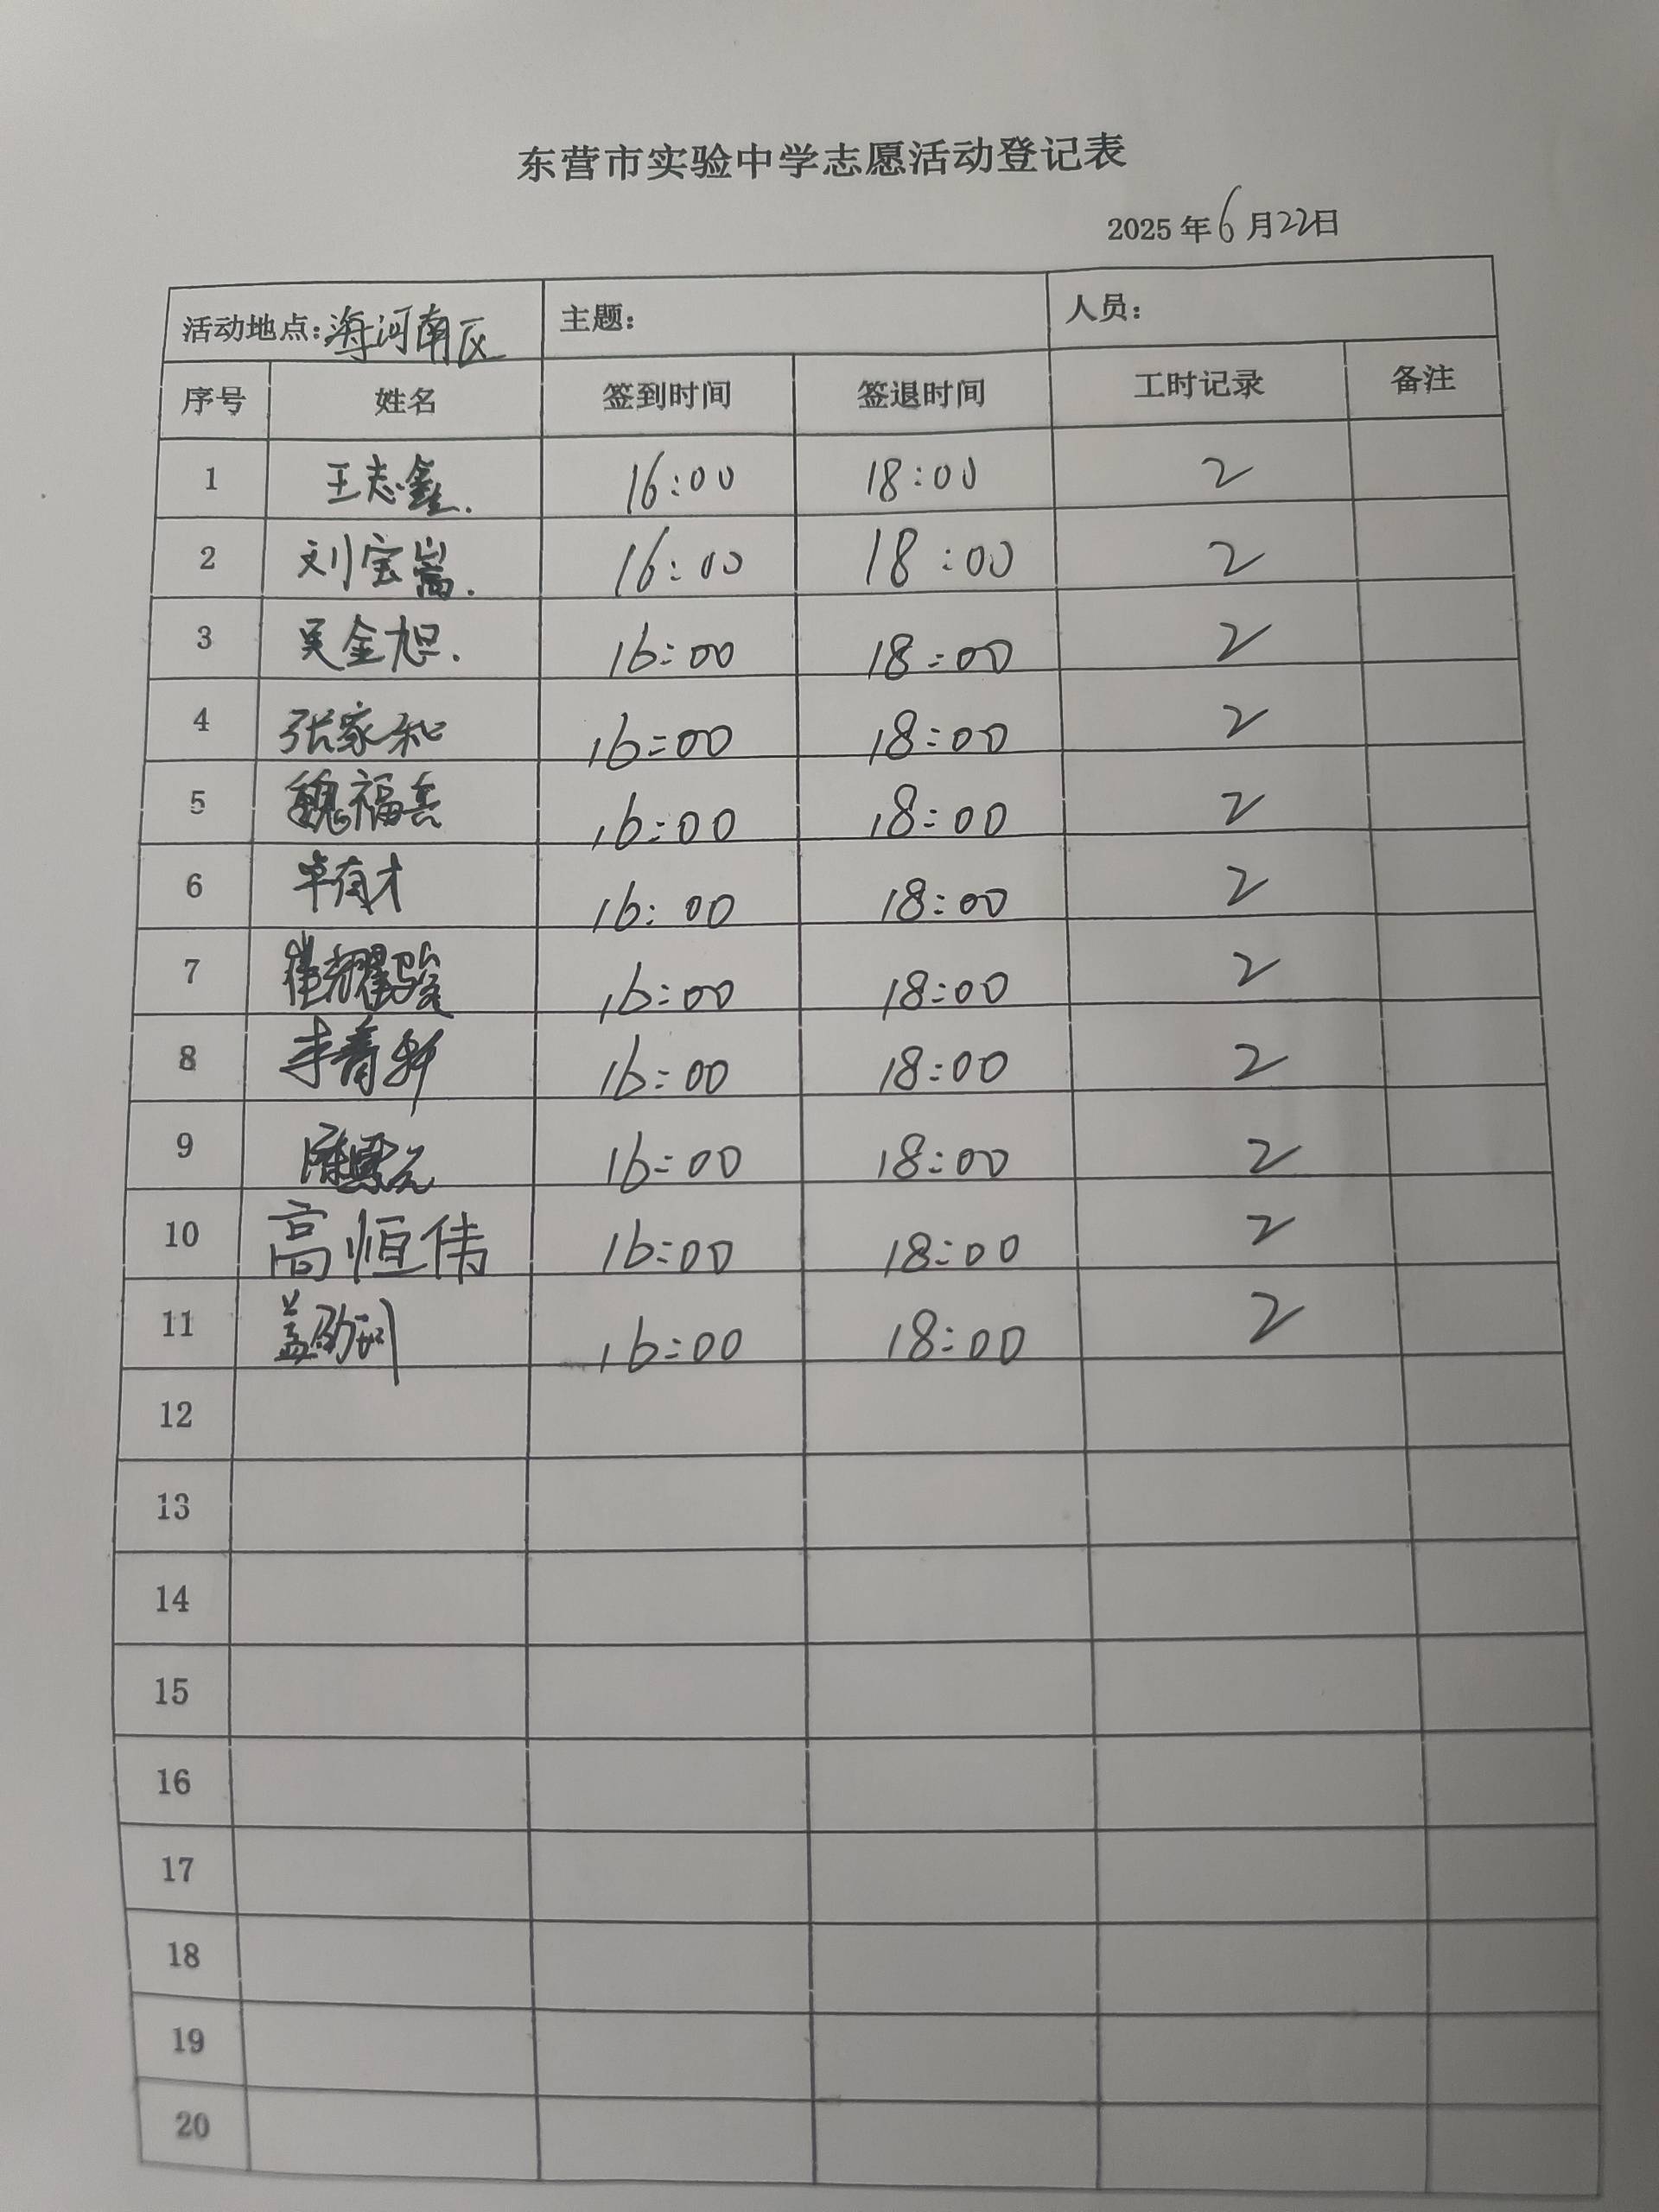 东营市实验中学志愿活动登记表
2025年6月22日
活动地点:海河南区 主题: 人员:
序号 姓名 签到时间 签退时间 工时记录 备注
1 王志鑫. 16:00 18:00 2
2 刘宝嵩. 16:00 18:00 2
3 吴金旭. 16:00 18:00 2
4 张家和 16:00 18:00 2
5 魏福兵 16:00 18:00 2
6 有才 16:00 18:00 2
7 崔耀骏 16:00 18:00 2
8 李 轩 16:00 18:00 2
9 16:00 18:00 2
10 高恒伟 16:00 18:00 2
11 盖 16:00 18:00 2
12
13
14
15
16
17
18
19
20